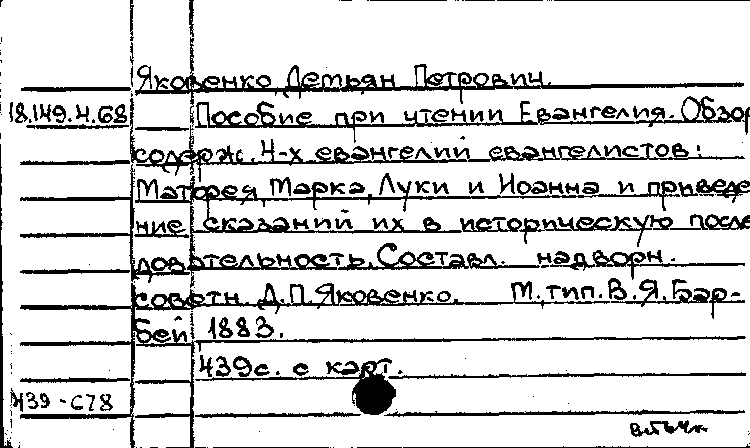 Яковенко, Демьян Петрович.
18.149.4.68 Пособие при чтении Евангелия. Обзор
содерж. 4-х евангелий евангелистов:
Матфея, Марка, Луки и Иоанна и приведе
ние сказаний их в историческую после
довательность. Составл. надворн.
советн. Д.П. Яковенко. М., тип. В.Я. Бар-
бей 1883.
439 с. с карт.